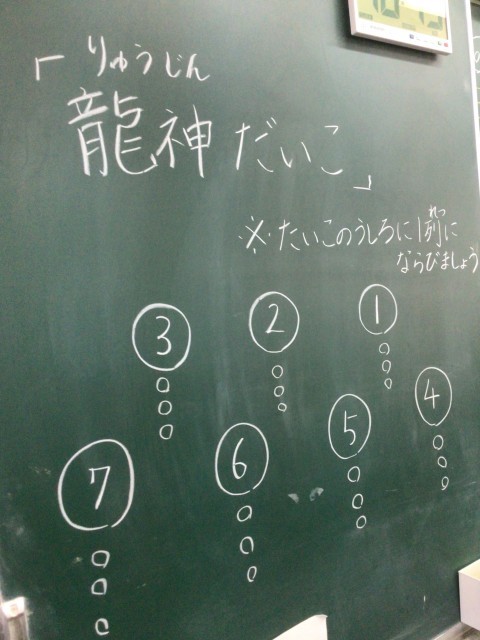 「りゅうじん
龍神だいこ」
※たいこのうしろに1列にれつ
ならびましょう
3 2 1
7 6 5 4